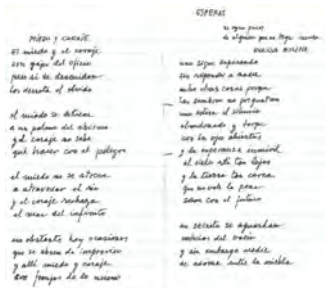 MIEDO Y CORAJE
el miedo y el coraje
son gajes del oficio
pero si se descuidan
los derrota el olvido
el miedo se detiene
a un palmo del abismo
y el coraje no sabe
qué hacer con el peligro
el miedo no se atreve
a atravesar el río
y el coraje rechaza
el mar del infinito
no obstante hay ocasiones
que se abren de improviso
y allí miedo y coraje
son franjas de lo mismo
ESPERAS
uno sigue esperando
sin responder a nadie
entre otras cosas porque
las sombras no preguntan
uno espera el silencio
abandonado y torpe
con los ojos abiertos
y la esperanza inmóvil
el cielo está tan lejos
y la tierra tan cerca
que no vale la pena
soñar con el futuro
en secreto se aguardan
noticias del vacío
y sin embargo nadie
se asoma entre la niebla